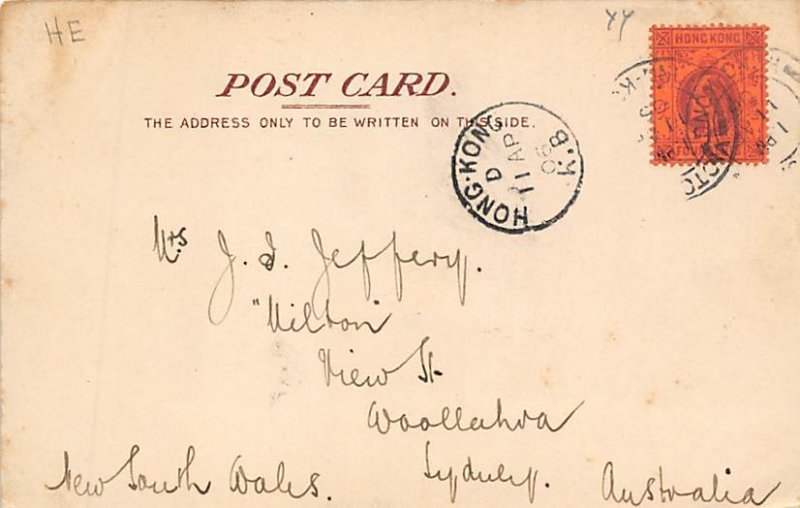 HE
YY
HONG KONG
POST CARD.
THE ADDRESS ONLY TO BE WRITTEN ON THIS SIDE.
HONG-KONG
D
11 AP
06
K.B
Mrs J. S. Jeffery.
"Milton"
View St.
Woollahra
Sydney.
New South Wales.
Australia